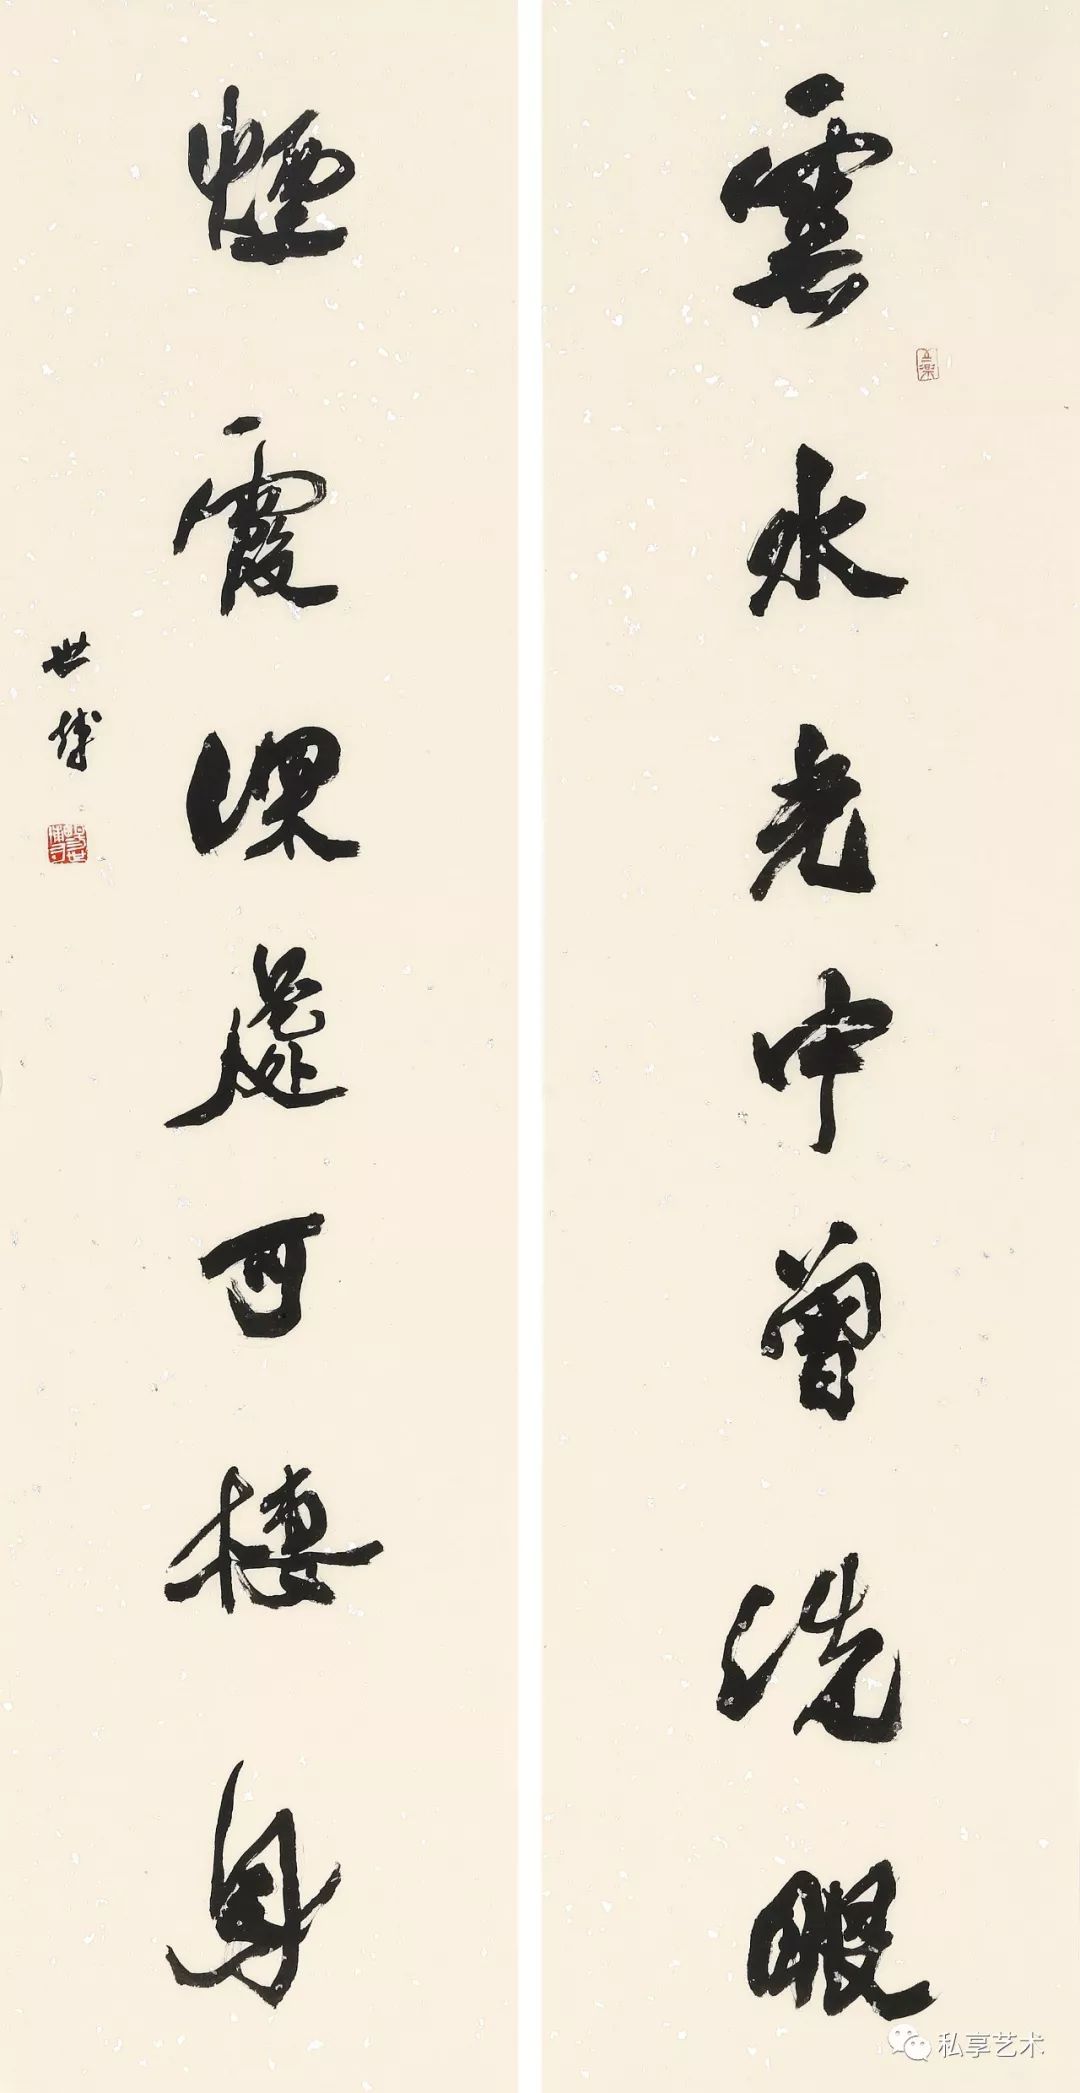 雲水光中曾洗眼
煙霞深處可棲身
世博
私享艺术